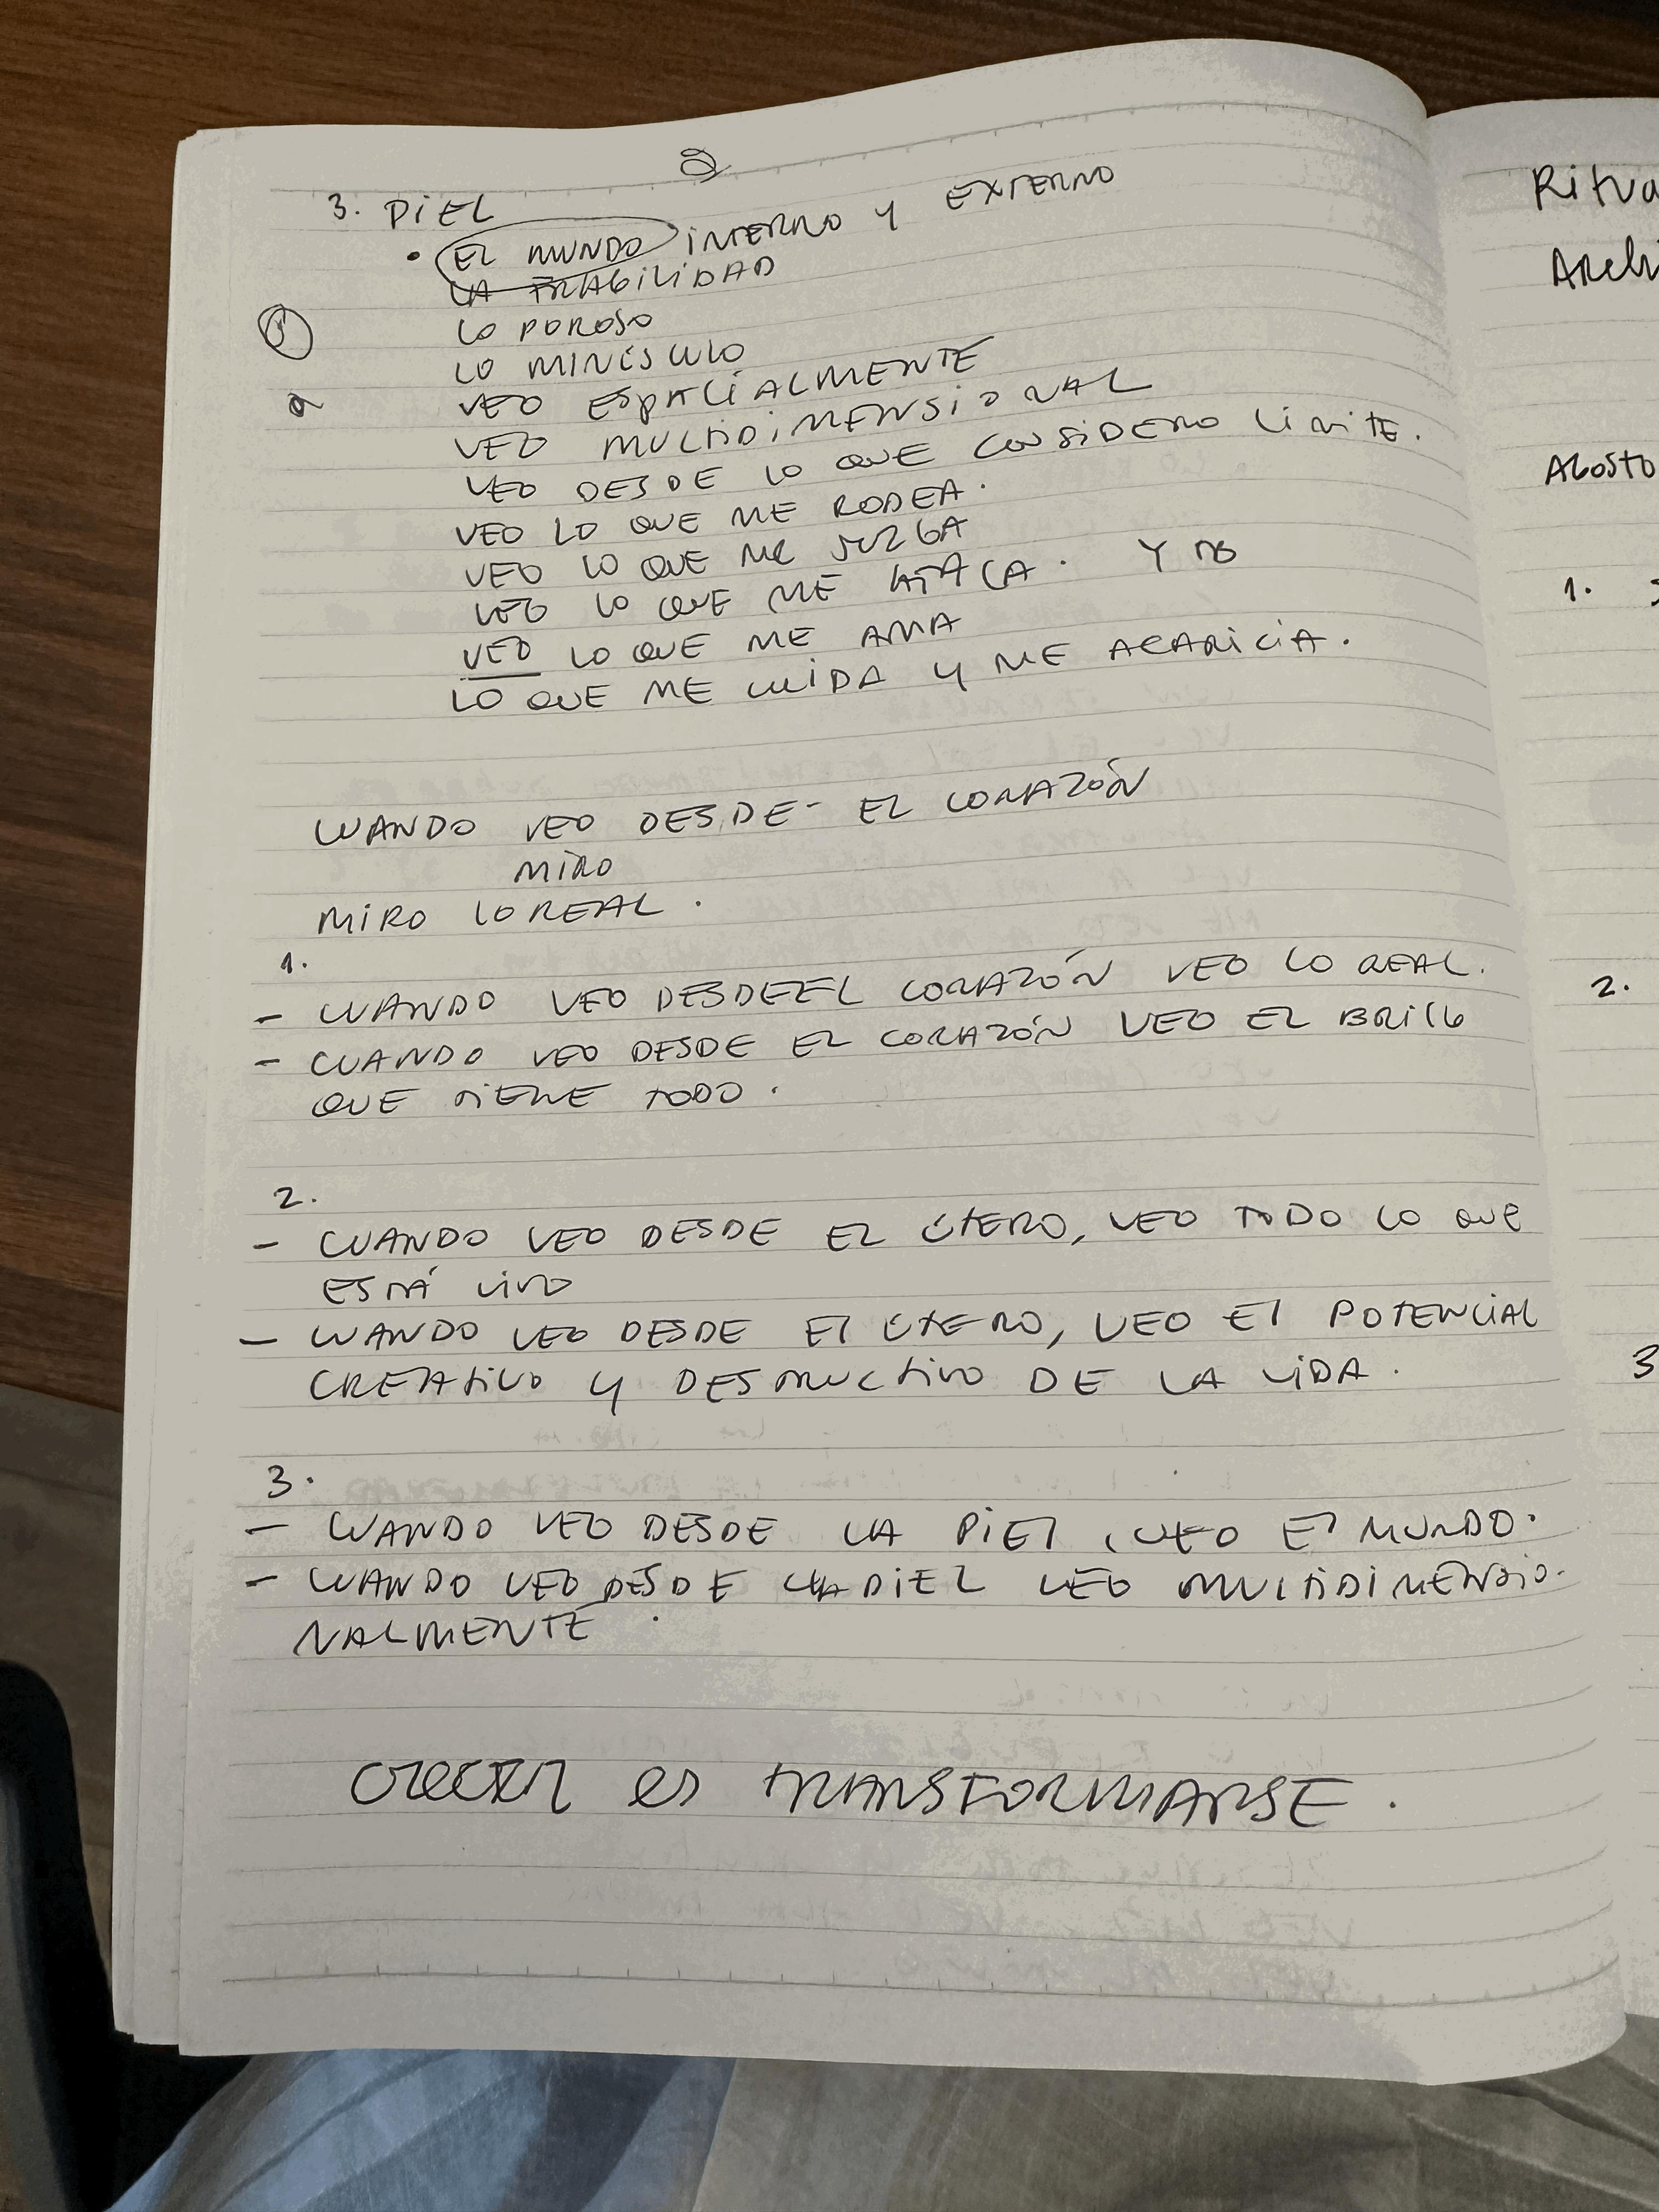 3. PIEL
• EL MUNDO INTERNO Y EXTERNO
LA FRAGILIDAD
LO POROSO
LO MINÚSCULO
VEO ESPACIALMENTE
VEO MULTIDIMENSIONAL
VEO DESDE LO QUE CONSIDERO LÍMITE.
VEO LO QUE ME RODEA.
VEO LO QUE ME JUZGA
VEO LO QUE ME ATACA. Y NO
VEO LO QUE ME AMA
LO QUE ME CUIDA Y ME ACARICIA.
CUANDO VEO DESDE- EL CORAZÓN
MIRO
MIRO LO REAL.
1.
- CUANDO VEO DESDE EL CORAZÓN VEO LO REAL.
- CUANDO VEO DESDE EL CORAZÓN VEO EL BRILLO
QUE TIENE TODO.
2.
- CUANDO VEO DESDE EL ÚTERO, VEO TODO LO QUE
ESTÁ VIVO
- CUANDO VEO DESDE El ÚTERO, VEO El POTENCIAL
CREATIVO Y DESTRUCTIVO DE LA VIDA.
3.
- CUANDO VEO DESDE LA PIEl, VEO El MUNDO.
- CUANDO VEO DESDE LA PIEL VEO MULTIDIMENSIO-
NALMENTE.
CRECER es TRANSFORMARSE.
Ritua
Archi
Agosto
1.
2.
3